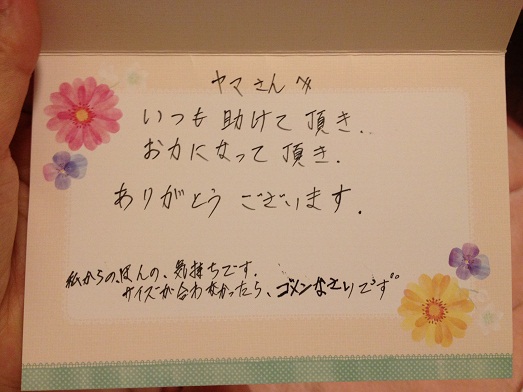 ヤマさんへ
いつも助けて頂き.
お力になって頂き.
ありがとうございます.
私からの、ほんの、気持ちです.
サイズが合わなかったら、ゴメンなさいです